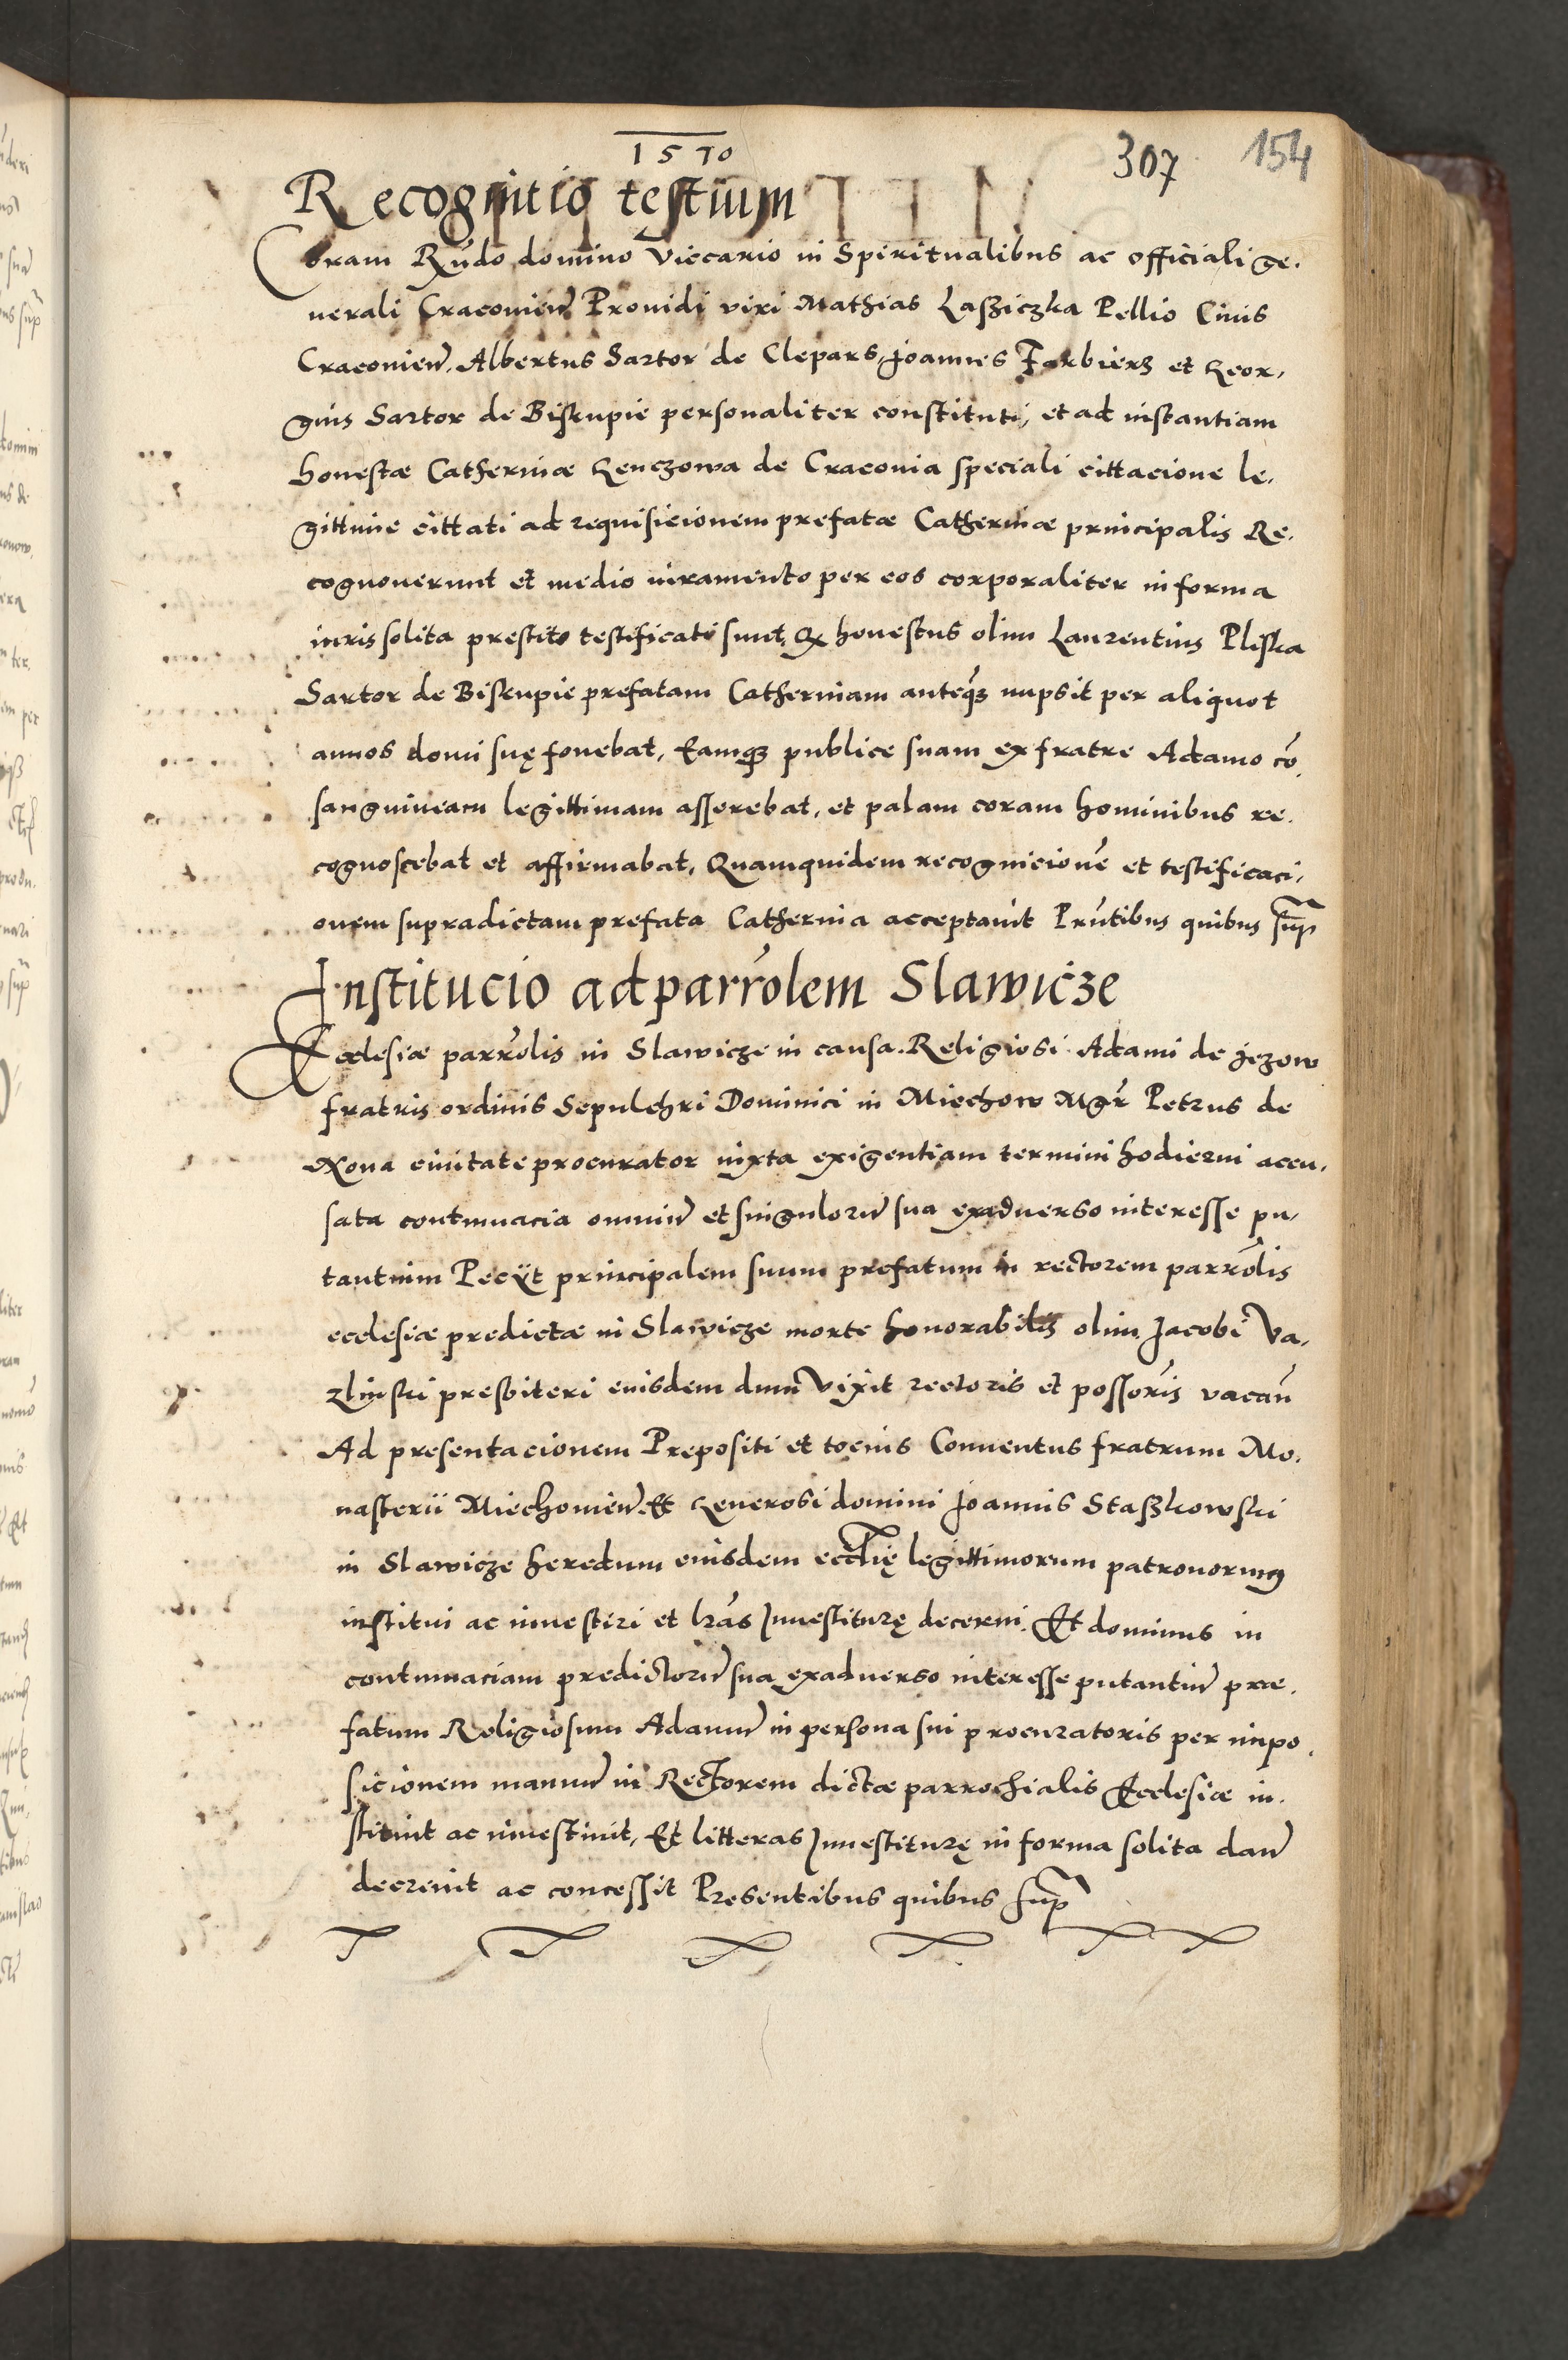 1570
307 154
Recognitio testium
Coram Rndo domino Viccario in Spiritualibus ac officiali ge.
nerali Cracovien Providi viri Mathias Lasziczka Pellio Civis
Cracovien. Albertus Sartor de Clepars, Joannes Farbierz et Geor,
gius Sartor de Biskupie personaliter constituti, et ad instantiam
honestæ Catherinæ Genczowa de Cracovia speciali cittacione le,
gittime cittati ad requisicionem prefatæ Catherinæ principalis Re,
cognoverunt et medio iuramento per eos corporaliter in forma
iuris solita prestito testificati sunt, Qz honestus olim Laurentius Pliska
Sartor de Biskupie prefatam Catherinam anteqz nupsit per aliquot
annos domi suę fovebat, Eamqz publice suam ex fratre Adamo cō,
sanguineam legittimam asserebat, et palam coram hominibus re.
cognoscebat et affirmabat, Quamquidem recognicionē et testificaci,
onem supradictam prefata Catherina acceptavit Prntibus quibus sup
Institucio ad parrolem Slawicze
Ecclesiæ parrolis in Slawicze in causa Religiosi Adami de Jezow
fratris ordinis Sepulchri Dominici in Miechow Mgr Petrus de
Nova civitate procurator iuxta exigentiam termini hodierni accu,
sata contumacia omniu et singuloru sua exadverso interesse pu,
tantium Peciit principalem suum prefatum in rectorem parrolis
ecclesiæ predictæ in Slawicze morte honorabilis olim Jacobi Va,
zlinski presbiteri eiusdem dum vixit rectoris et possoris vacan
Ad presentacionem Prepositi et tocius Conventus fratrum Mo.
nasterii Miechovien Et Generosi domini Joannis Staszkowski
in Slawicze heredum eiusdem ecclię legittimorum patronorum
institui ac investiri et lras Investiturę decerni. Et dominus in
contumaciam predictoru sua exadverso interesse putantiu præ.
fatum Religiosum Adamu in persona sui procuratoris per impo,
sicionem manuu in Rectorem dictæ parrochialis Ecclesiæ in.
stituit ac investivit, Et litteras Investiturę in forma solita dan
decrevit ac concessit Presentibus quibus sup